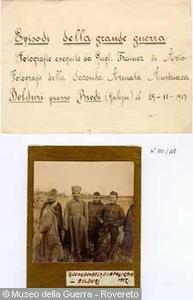 Episodi della grande guerra
Fotografie eseguite da Gugl. Trainer di Avio
Fotografo della Seconda Armata Austriaca
Boldury presso Brodi (Galizia) il 29-11-1917
1917
© Museo della Guerra - Rovereto